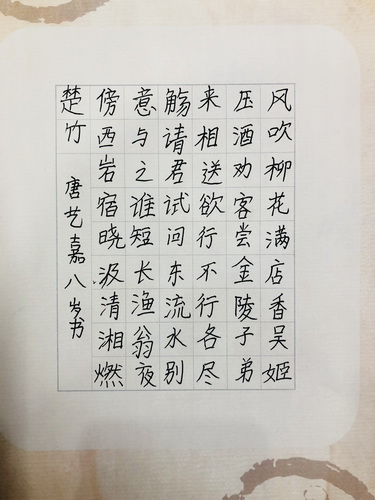 风吹柳花满店香吴姬
压酒劝客尝金陵子弟
来相送欲行不行各尽
觞请君试问东流水别
意与之谁短长渔翁夜
傍西岩宿晓汲清湘燃
楚竹
唐艺嘉八岁书